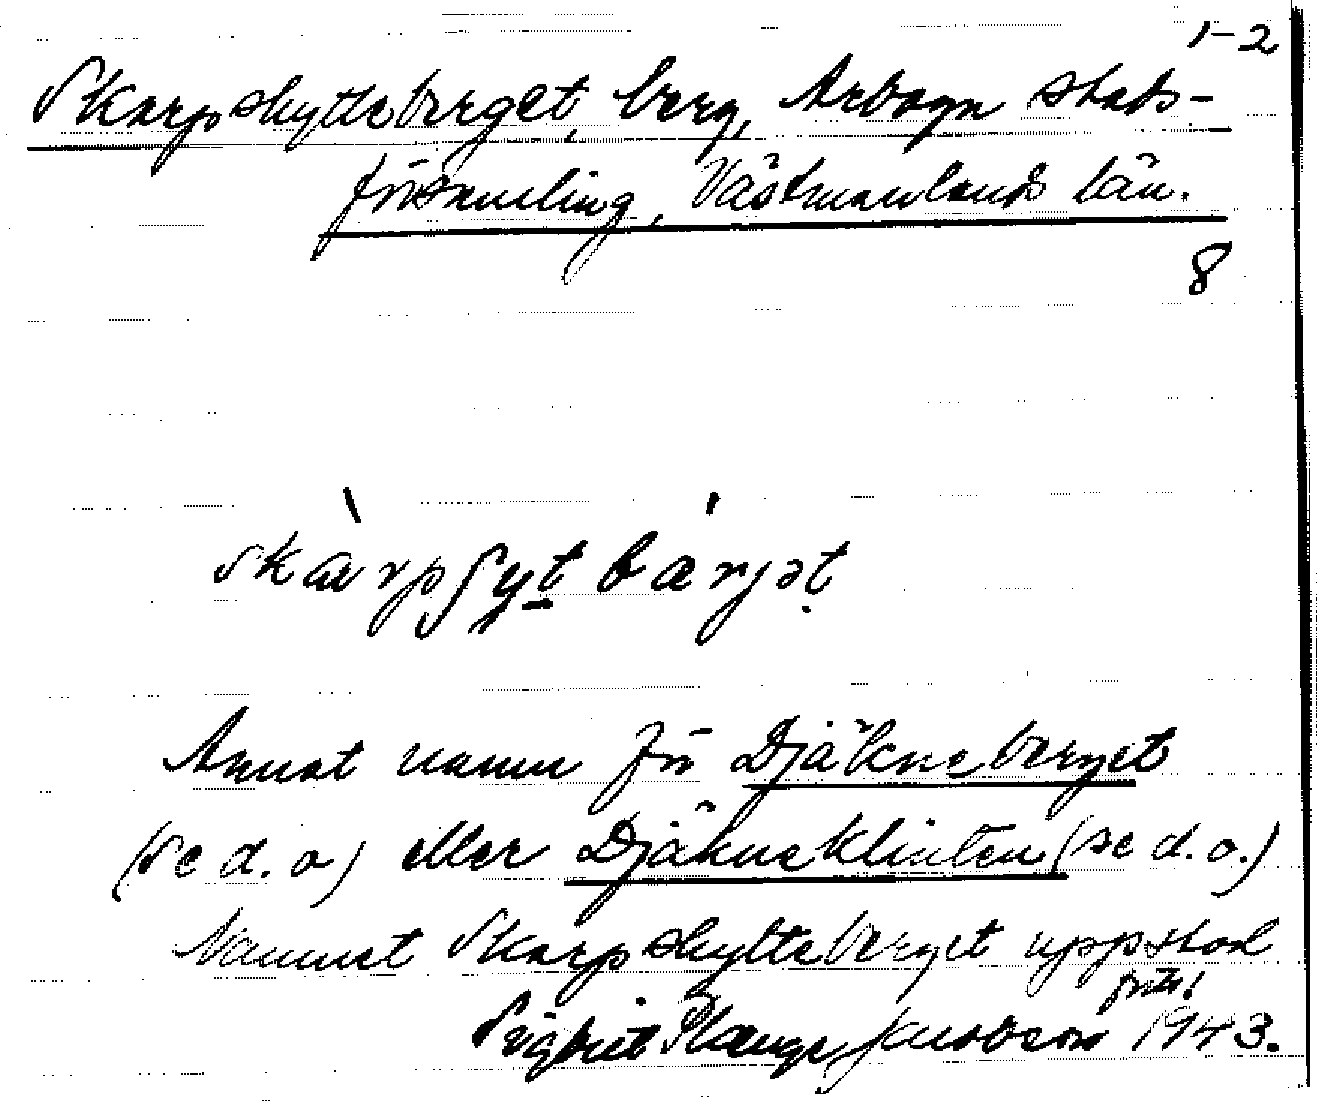 1-2
Skarpskytteberget, berg, Arboga stads-
församling, Västmanlands län.
8
skarpʃyt bærjət
Annat namn för Djäkneberget
(se d. o) eller Djäkneklinten (se d. o.)
Namnet Skarpskytteberget uppstod
forts!
Sigbrit Plænge Jacobson 1943.